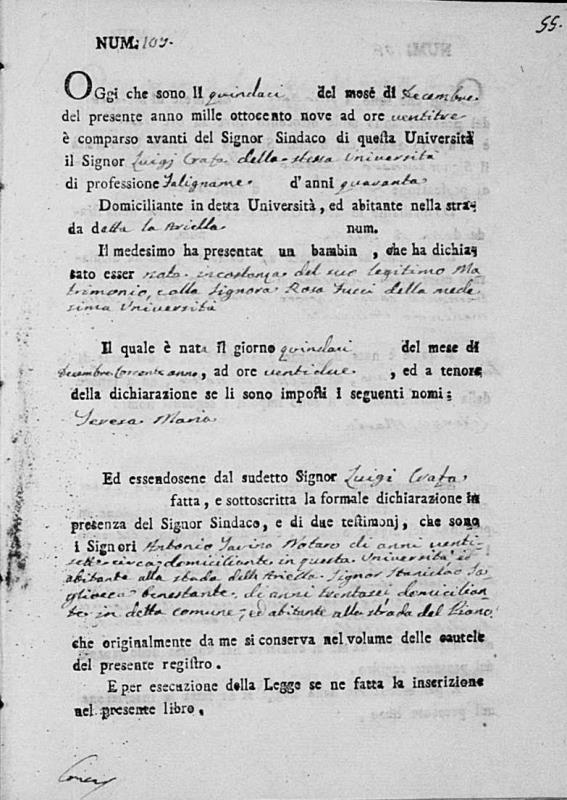 55.
NUM: 107.
OGgi che sono li quindaci del mese di Decembre
del presente anno mille ottocento nove ad ore ventitre
è comparso avanti del Signor Sindaco di questa Università
il Signor Luigj Crafa della stessa Università
di professione Falegname d'anni quaranta
Domiciliante in detta Università, ed abitante nella stra-
da detta la Ariella num.
Il medesimo ha presentat un bambin , che ha dichia-
rato esser nata incostanza del suo legitimo Ma
trimonio, colla Signora Rosa Fucci della mede
sima Università
Il quale è nata Il giorno quindaci del mese di
Decembre corrente anno, ad ore ventidue , ed a tenore
della dichiarazione se li sono imposti i seguenti nomi:
Teresa Maria
Ed essendosene dal sudetto Signor Luigi Crafa
fatta, e sottoscritta la formale dichiarazione in
presenza del Signor Sindaco, e di due testimonj, che sono
i Signori Antonio Notaro di anni venti-
sette circa domiciliante in questa Università ed
abitante alla strada dell Ariella Signor Stanislao
benestante di anni trentasei domicilian
te in detta comune, ed abitante alla strada del Piano
che originalmente da me si conserva nel volume delle cautele
del presente registro.
E per esecuzione della Legge se ne fatta la inserizione
nel presente libro.